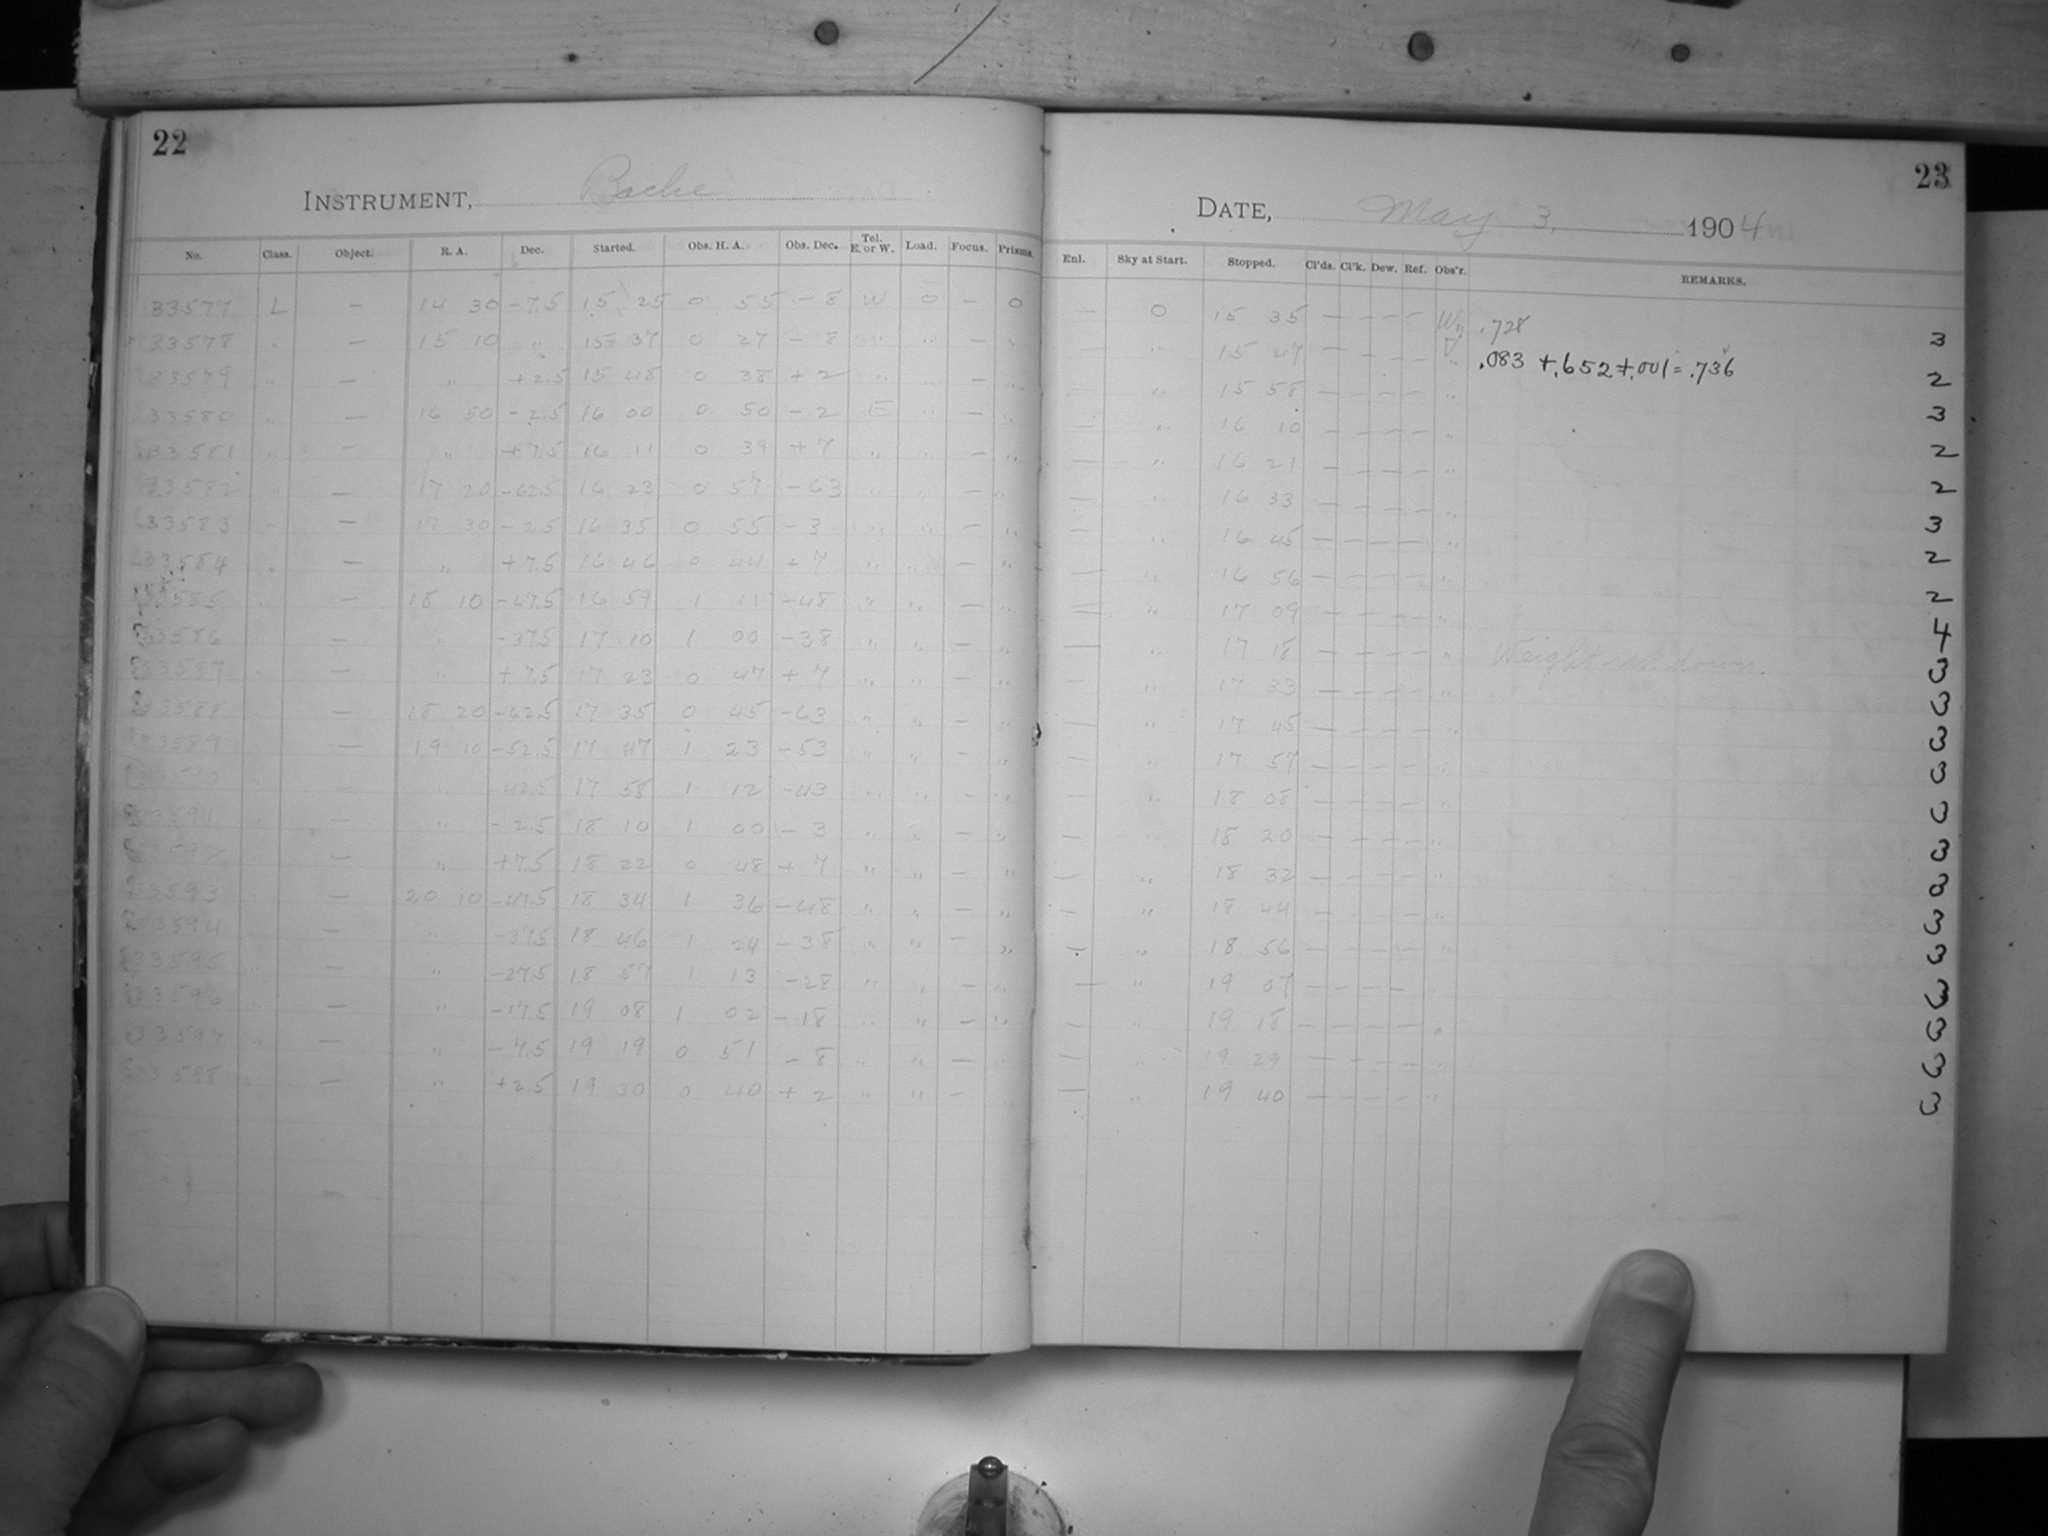 22
INSTRUMENT, Bache
No. Class. Object. R. A. Dec. Started. Obs. H. A. Obs. Dec. Tel. E. or W. Load. Focus. Prisms.
33577 L — 14 30 -7.5 15 25 0 55 -8 W 0 — 0
33578 " — 15 10 " 15 37 0 27 -8 " " — "
33579 " — " +2.5 15 48 0 38 +2 " " — "
33580 " — 16 50 -2.5 16 00 0 50 -2 E " — "
33581 " — " +7.5 16 11 0 39 +7 " " — "
33582 " — 17 20 -62.5 16 23 0 57 -63 " " — "
33583 " — 17 30 -2.5 16 35 0 55 -3 " " — "
33584 " — " +7.5 16 46 0 44 +7 " " — "
33585 " — 18 10 -47.5 16 59 1 11 -48 " " — "
33586 — " -37.5 17 10 1 00 -38 " " — "
33587 " — " +7.5 17 23 0 47 +7 " " — "
33588 — 18 20 -62.5 17 35 0 45 -63 " " — "
33589 — 19 10 -52.5 17 47 1 23 -53 " " — "
33590 " — " -42.5 17 58 1 12 -43 " " — "
33591 " — " -2.5 18 10 1 00 -3 " " — "
33592 " — " +7.5 18 22 0 48 +7 " " — "
33593 " — 20 10 -47.5 18 34 1 36 -48 " " — "
33594 — " -37.5 18 46 1 24 -38 " " — "
33595 " — " -27.5 18 57 1 13 -28 " " — "
33596 " — " -17.5 19 08 1 02 -18 " " — "
33597 " — " -7.5 19 19 0 51 -8 " " — "
33598 — " +2.5 19 30 0 40 +2 " " — "
23
DATE, May 3, 1904
Enl. Sky at Start. Stopped. Cl'ds. Cl'k. Dew. Ref. Obs'r. REMARKS.
— 0 15 35 — — — — .728 3
— " 15 47 — — — — " .083 +.652+.001=.736 2
— " 15 58 — — — — " 3
— " 16 10 — — — — " 2
— " 16 21 — — — — " 2
— " 16 33 — " 3
— " 16 45 — — — — " 2
— " 16 56 — — — — " 2
— " 17 09 — — — — " 4
— " 17 18 — — — — " Weight ran down. 3
— " 17 33 — — — — " 3
— " 17 45 — — — — " 3
— " 17 57 — — — — " 3
— " 18 08 — — — — " 3
— " 18 20 — — — — " 3
— " 18 32 — — — — " 3
— " 18 44 — — — — " 3
— " 18 56 — — — — " 3
— " 19 07 — — — — " 3
— " 19 18 — — — — " 3
— " 19 29 — — — — " 3
— " 19 40 — — — — " 3